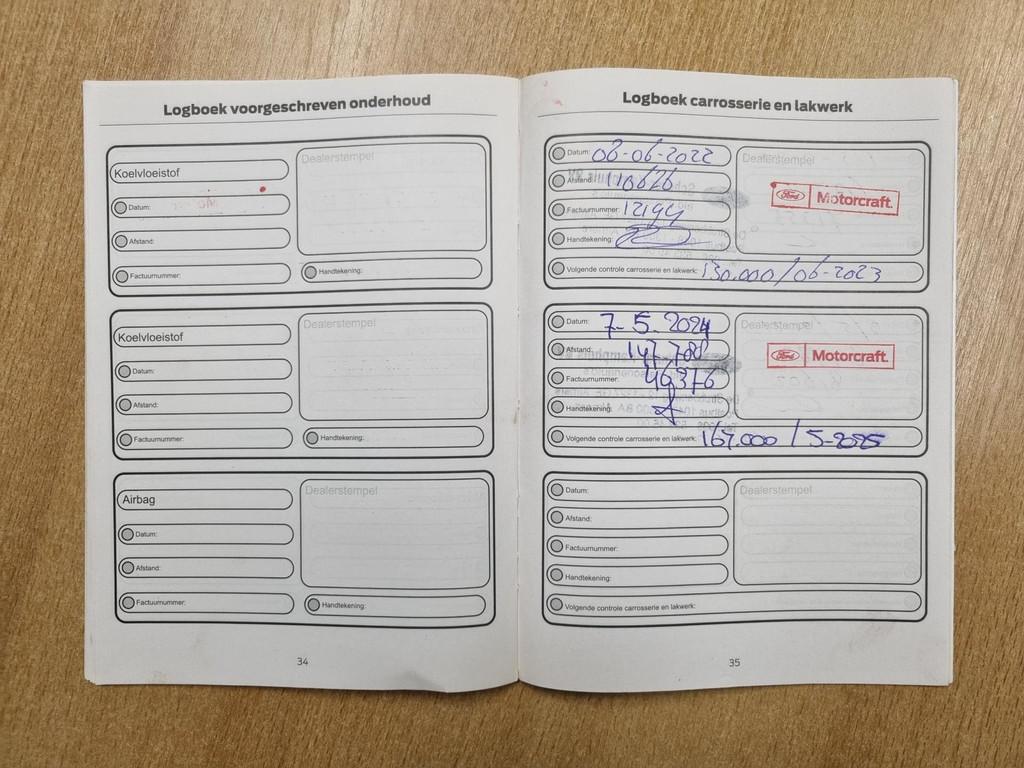 Logboek voorgeschreven onderhoud
Koelvloeistof
Dealerstempel
Datum:
Afstand:
Factuurnummer:
Handtekening:
Koelvloeistof
Dealerstempel
Datum:
Afstand:
Factuurnummer:
Handtekening:
Airbag
Dealerstempel
Datum:
Afstand:
Factuurnummer:
Handtekening:
34
Logboek carrosserie en lakwerk
Datum: 06-06-2022
Dealerstempel
Afstand: 110626
Ford Motorcraft.
Factuurnummer: 12194
Handtekening:
Volgende controle carrosserie en lakwerk: 130.000/06-2023
Datum: 7-5-2024
Dealerstempel
Afstand: 147.788
Ford Motorcraft.
Factuurnummer: 46376
Handtekening:
Volgende controle carrosserie en lakwerk: 167.000 / 5-2025
Datum:
Dealerstempel
Afstand:
Factuurnummer:
Handtekening:
Volgende controle carrosserie en lakwerk:
35